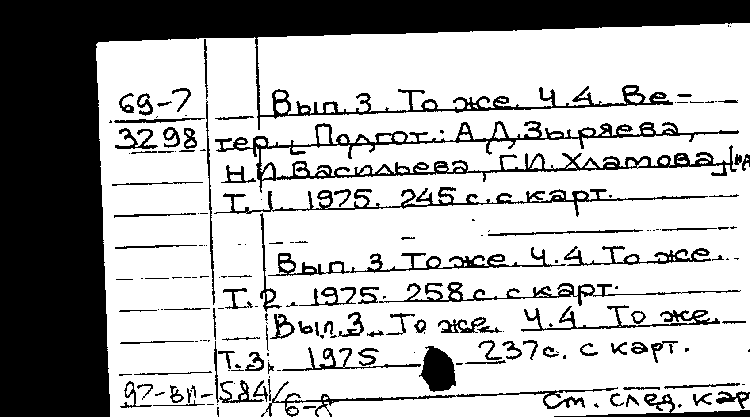 69-7 Вып. 3. То же. Ч. 4. Ве-
3298 тер. [Подгот.: А.Д. Зыряева,
Н.И. Васильева, Г.И. Хламова]
Т. 1. 1975. 245 с. с карт.
Вып. 3. То же. Ч. 4. То же.
Т. 2. 1975. 258 с. с карт.
Вып. 3. То же. Ч. 4. То же.
Т. 3. 1975 237 с. с карт.
97-ВП-584/6-8 Ст. след. кар